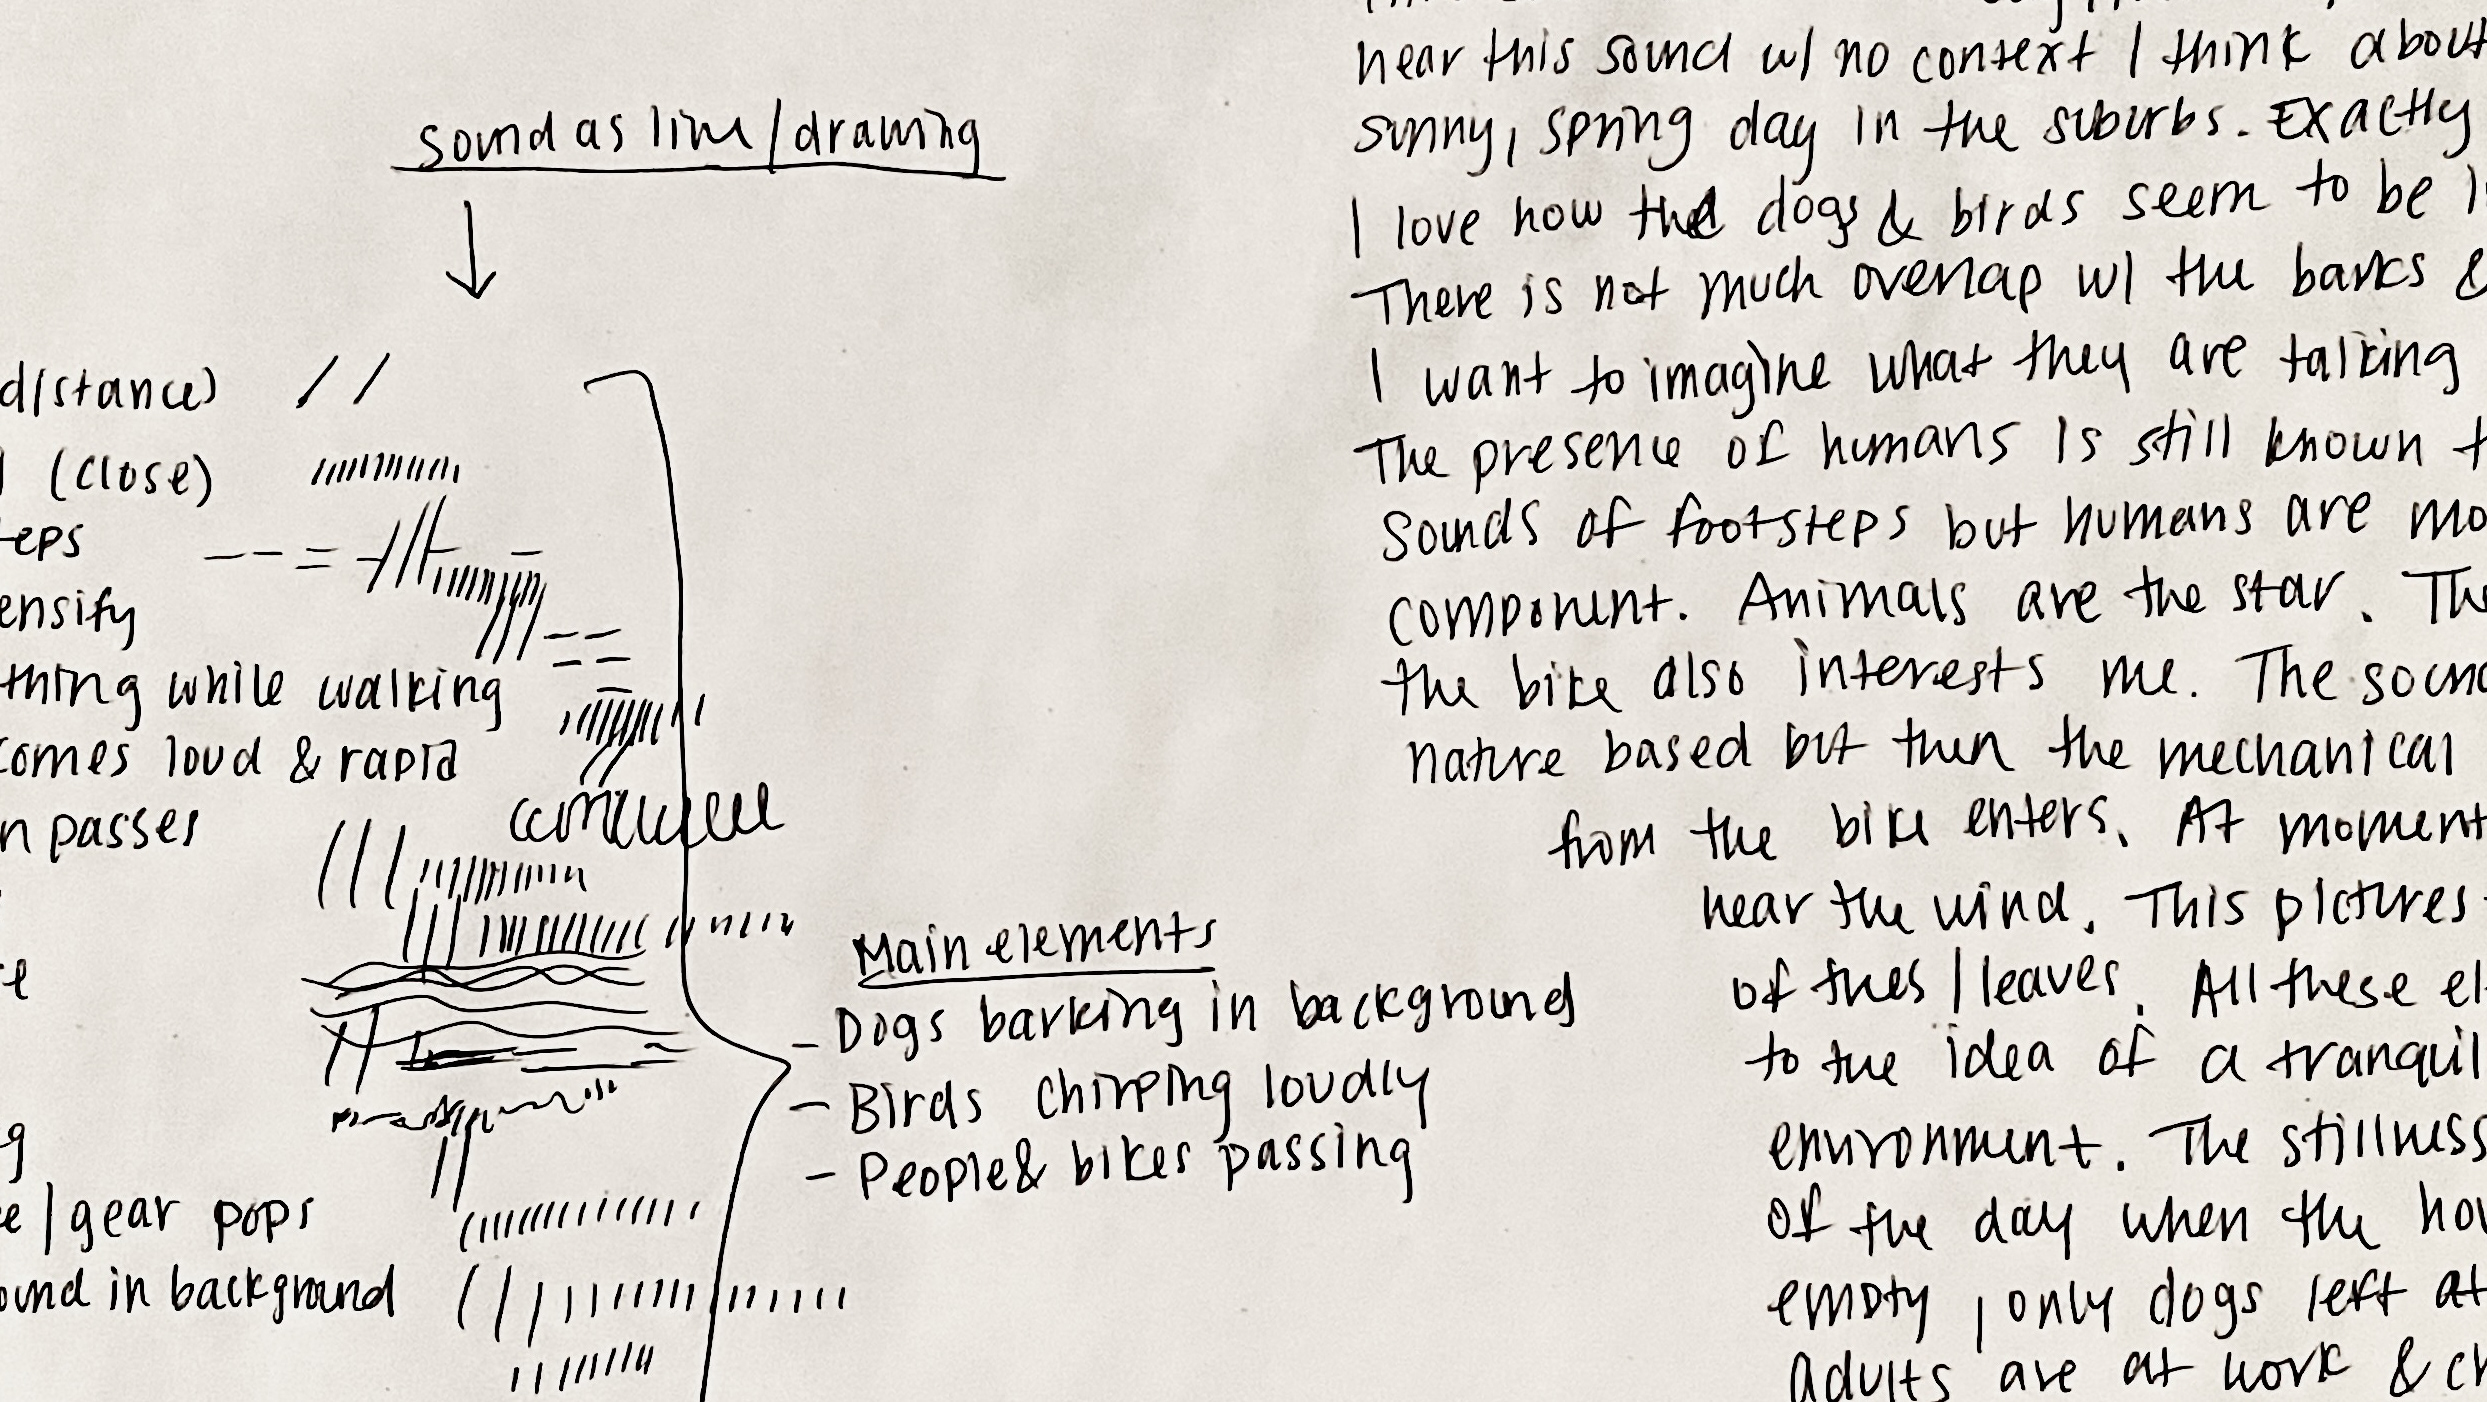 sound as line/drawing
distance)
(close)
teps
ensify
thing while walking
comes loud & rapid
n passes
g
e/gear pops
ound in background
Main elements
- Dogs barking in background
- Birds chirping loudly
- People & bikes passing
hear this sound w/ no context I think about
sunny, spring day in the suburbs. Exactly
I love how the dogs & birds seem to be
There is not much overlap w/ the barks &
I want to imagine what they are talking
The presence of humans is still known
sounds of footsteps but humans are mo
component. Animals are the star. Th
the bike also interests me. The sound
nature based but then the mechanical
from the bike enters. At moment
hear the wind. This pictures
of trees/leaves. All these el
to the idea of a tranquil
environment. The stillness
of the day when the hou
empty, only dogs left at
Adults are at work & ch